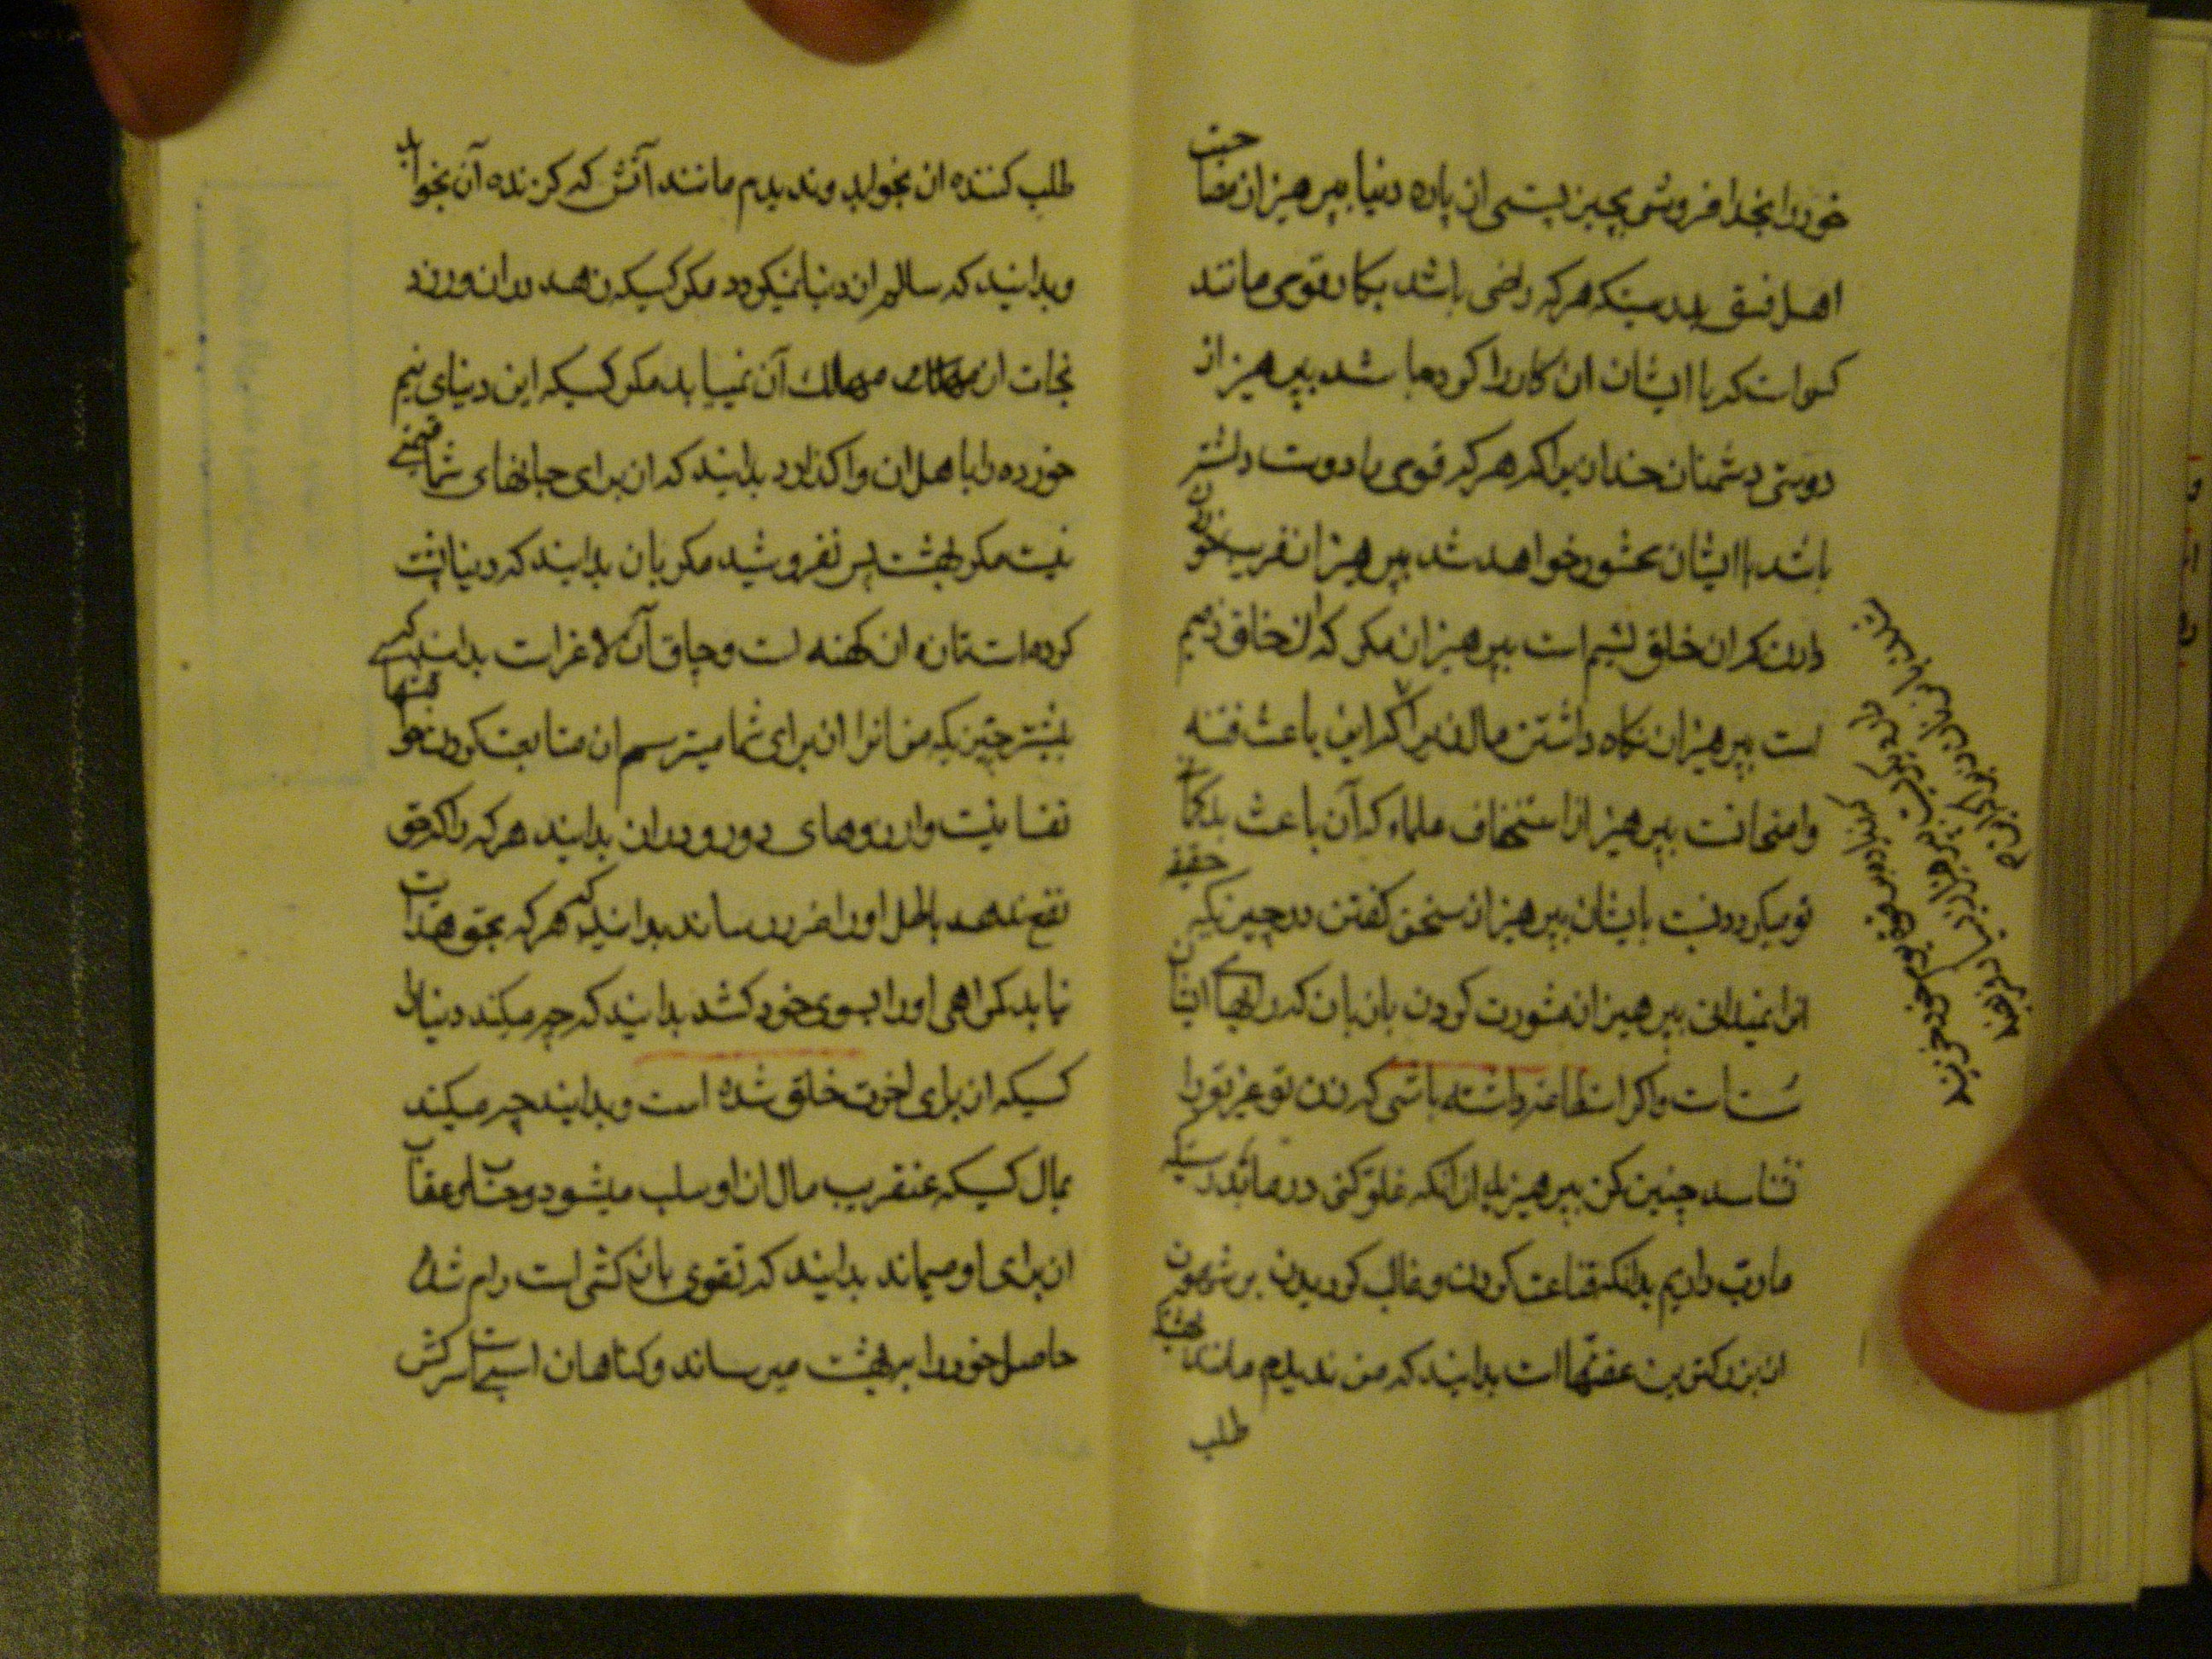 خود را بخدا فروشی بچیز پستی از پاره دنیا بپرهیز از مصاحبت
اهل فسق بدرستیکه هر که راضی باشد بکار قومی مانند
کسی است که با ایشان ان کار را کرده باشد بپرهیز از
دوستی دشمنان خدا زیرا که هر که قومی را دوست داشته
باشد با ایشان محشور خواهد شد بپرهیز از فریب خوردن
که ان خلق لئیم است بپرهیز از مکر که ان خلق ذمیم
است بپرهیز از نکاه داشتن مال زیرا که این باعث فتنه
وامتحانست بپرهیز از استخفاف علماء که آن باعث بدکمانی
تو میکردد نسبت بایشان بپرهیز از سخن کفتن در چیزیکه حقیقت
انرا نمیدانی بپرهیز از مشورت کردن با زنان که رایهای ایشان
سست است واکر استطاعت داشته باشی که زن تو غیر تو را
نشناسد چنین کن بپرهیز از انکه غلو کنی در ما بدرستیکه
ما رب داریم بدانکه قناعت کردن و غالب کردیدن بر شهوت
از بزرکترین عفتها است بدانید که من ندیدم مانند بهشت که
طلب
طلب کننده ان بخوابد وندیدم مانند آتش که کریزنده آن بخوابد
وبدانید که سالم از دنیا نمیکردد مکر کسیکه زهد در ان ورزد
نجات از مهالك آن نمییابد مکر کسیکه این دنیای نیم
خورده را با هل ان واکذارد بدانید که از برای جانهای شما قیمتی
نیست مکر بهشت پس نفروشید مکر بان بدانید که دنیا پشت
کرده است تازه ان کهنه است و چاق آن لاغر است بدانید که
بیشتر چیزیکه من انرا از برای شما میترسم ان متابعت کردن خواهشهای
نفسانیست وارزوهای دور ودراز بدانید هر که را که حق
نفع ندهد باطل اورا ضرر رساند بدانید که هر که بحق هدایت
نیابد کمراهی اورا بسوی خود کشد بدانید که چه میکند دنیا را
کسیکه از برای اخرت خلق شده است وبدانید چه میکند
بمال کسیکه عنقریب مال از او سلب میشود وحساب وعقاب
ان برای او میماند بدانید که تقوی بان کشی است رام شده
حامل خود را به بهشت میرساند وکناهان اسبهاست سرکش